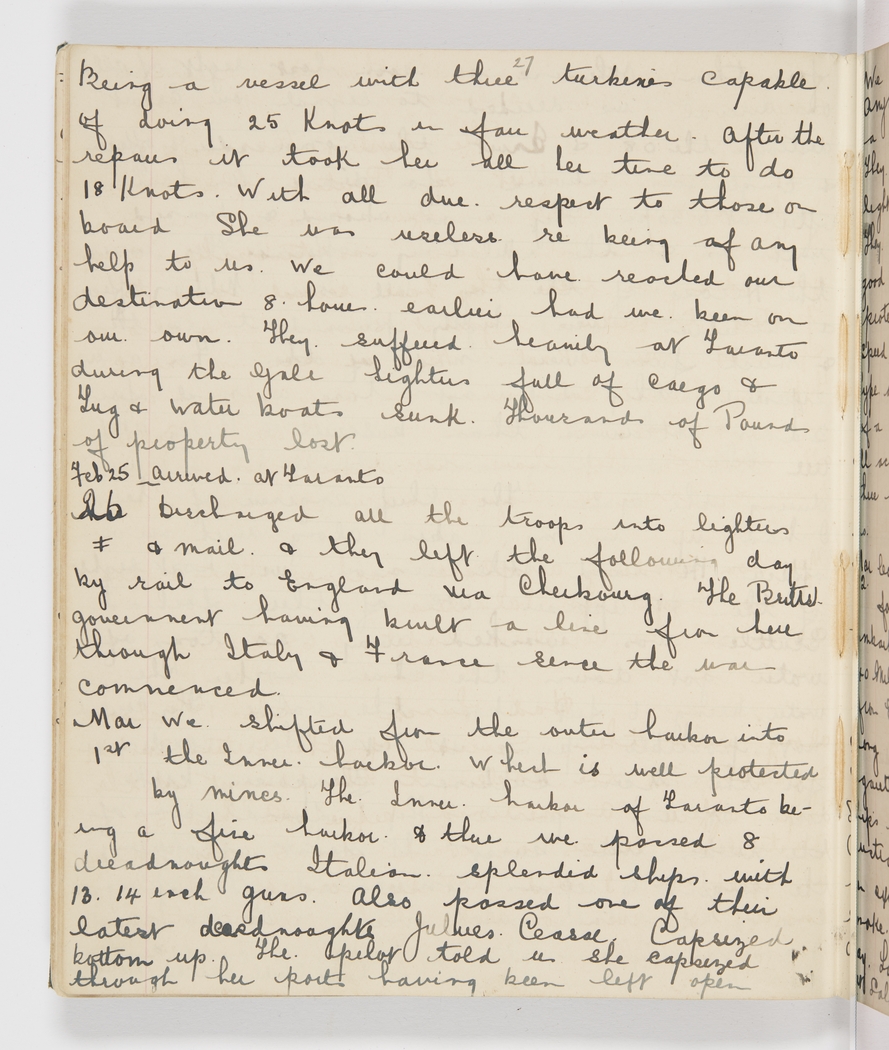 27
Being a vessel with three turbines capable.
of doing 25 Knots in fair weather. After the
repairs it took her all her time to do
18 Knots. With all due. respect to those on
board She was useless. re being of any
help to us. We could have. reached our
destination 8. hours. earlier had we. been on
our. own. They. suffered. heavily at Taranto
during the gale lighters full of cargo &
Tug & Water boats sunk. Thousands of Pounds
of property lost.
Feb 25 _ arrived. at Taranto
26 Discharged all the troops into lighters
& mail. & they left. the following day
by rail to England via Cherbourg. The British
government having built a line from here
through Italy & France since the war
commenced.
Mar We. shifted from the outer harbor into
1st the Inner. harbor. Which is well protected
by mines. The. Inner. harbor of Taranto be-
ing a fine harbor. & there we. passed 8
dreadnoughts Italian. splendid ships. with
13. 14 inch guns. Also passed one of their
latest dreadnoughts Julues. Ceasse. Capsized.
bottom up. The. pilot told us she capsized
through her ports having been left open